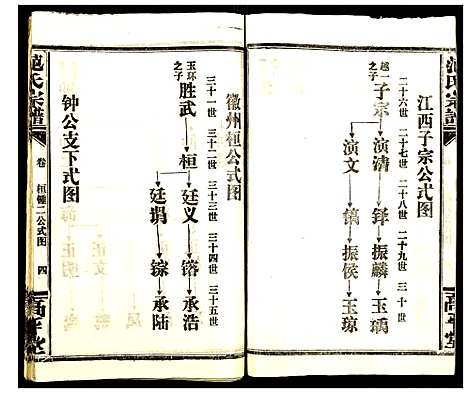 范氏宗譜
江西子宗公式图
二十六世 二十七世 二十八世 二十九世 三十世
越一之子 子宗
演清 铎 振麟 玉瑀
演文 镐 振侯 玉琼
高平堂
徽州桓公式图
三十一世 三十二世 三十三世 三十四世 三十五世
玉环之子 胜武
桓 廷义 镕 承浩
廷瑞 鍄 承陆
钟公支下式图
范氏宗譜
卷 桓钟二公式图 四
高平堂